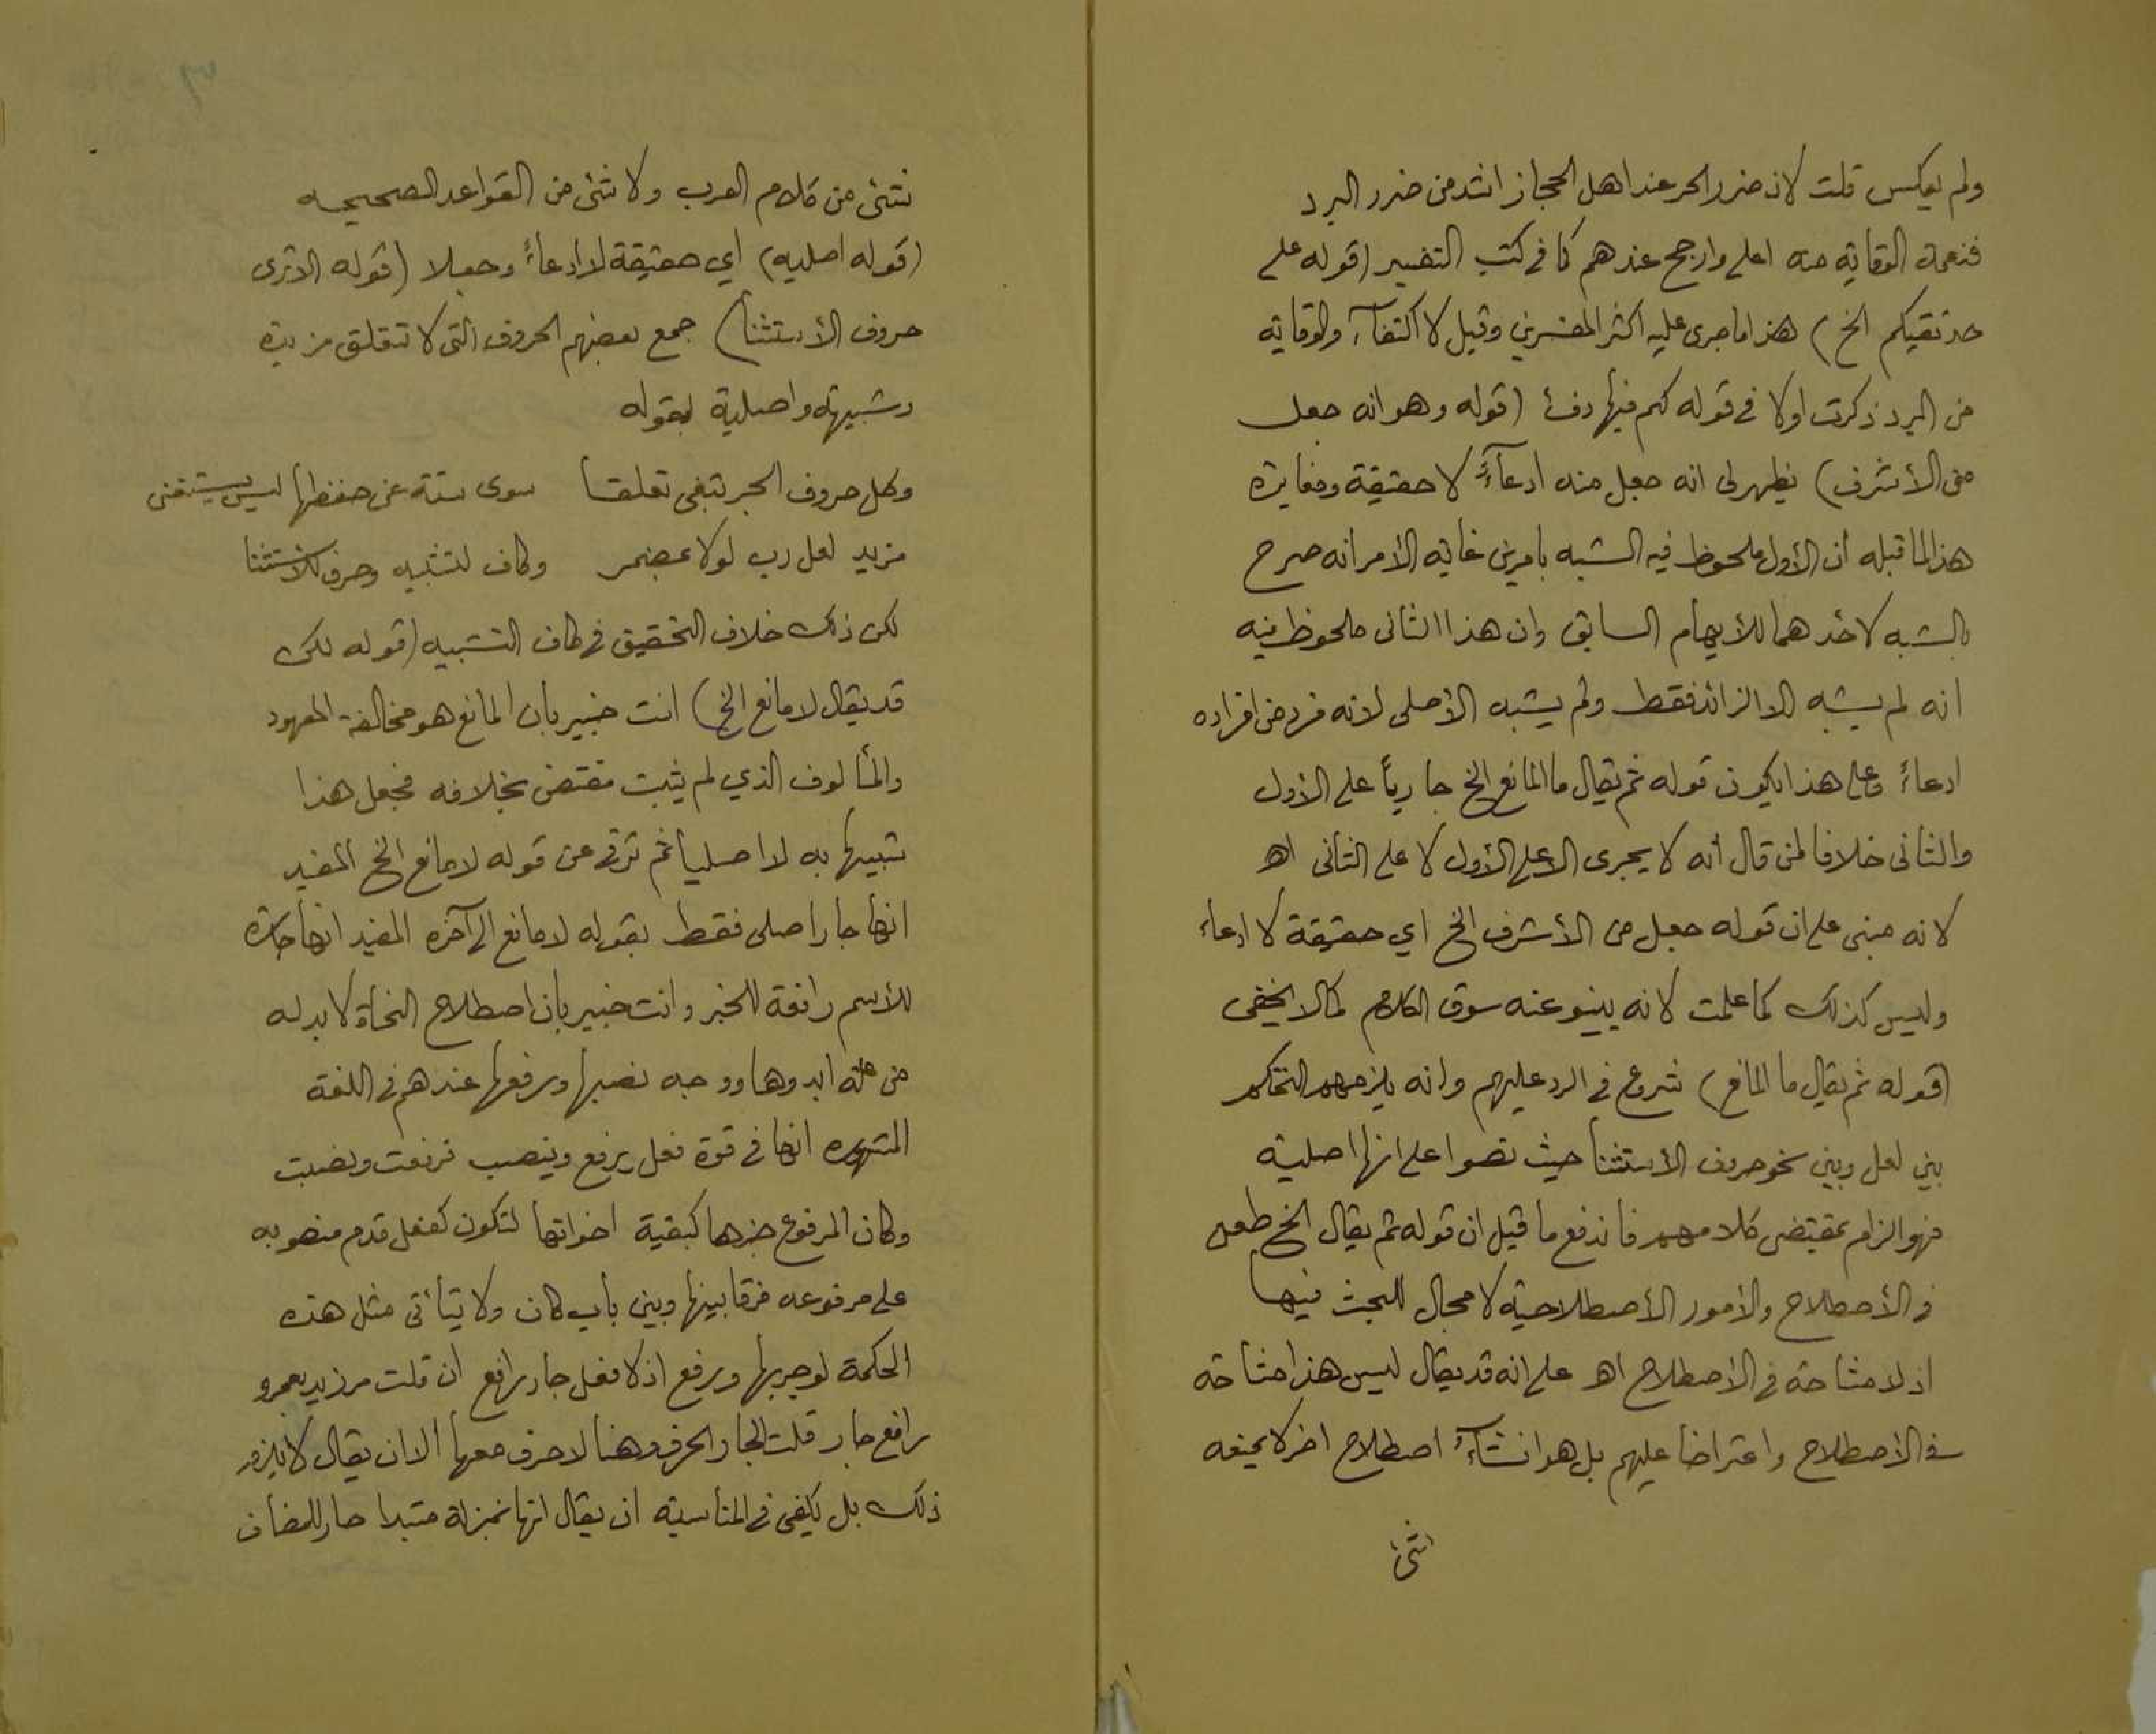 ولم يعكس قلت لان ضرر الحر عند اهل الحجاز اشد من ضرر البرد
فنعمة الوقاية منه اعلى وارجح عندهم كما في كتب التفسير (قوله على
حد تقيكم الخ) هذا ما جرى عليه اكثر المفسرين وقيل لا اكتفآء والوقاية
من البرد ذكرت اولا في قوله لكم فيها دفء (قوله وهو انه جعل
من الأشرف) يظهر لي انه جعل منه ادعآءً لا حقيقة ومغايرة
هذا لما قبله أن الأول ملحوظ فيه الشبه بامرين غاية الأمر أنه صرح
بالشبه لاحدهما للأيهام السابق وان هذا الثانى ملحوظ فيه
انه لم يشبه الا الزائد فقط ولم يشبه الأصلى لانه فرد من افراده
ادعاءً وعلى هذا يكون قوله ثم يقال ما المانع الخ جارياً على الأول
والثانى خلافا لمن قال أنه لا يجرى الا على الأول لا على الثانى اهـ
لانه مبنى على ان قوله جعل من الأشرف الخ اي حقيقة لا ادعاء
وليس كذلك كما علمت لانه ينبو عنه سوق الكلام كما لا يخفى
(قوله ثم يقال ما المانع) شروع في الرد عليهم وانه يلزمهم التحكم
بين لعل وبين نحو حروف الأستثنا حيث نصوا على انها اصلية
فهو الزام بمقتضى كلامهم فاندفع ما قيل ان قوله ثم يقال الخ طعن
في الأصطلاح والأمور الأصطلاحية لا مجال للبحث فيها
اذ لا مشاحة في الأصطلاح اهـ على انه قد يقال ليس هذا مشاحة
في الاصطلاح واعتراضا عليهم بل هو انشآءُ اصطلاح اخر لا يمنعه
شئ
شئ من كلام العرب ولا شئ من القواعد الصحيحه
(قوله اصليه) اي حقيقة لا ادعاءً وجعلا (قوله الا ترى
حروف الأستثنا) جمع بعضهم الحروف التى لا تتعلق مزيدة
وشبيهة واصلية بقوله
وكل حروف الجر تبغى تعلقا سوى ستة عن حفظها ليس يستغنى
مزيد لعل رب لولا بمضمر وكاف لتشبيه وحرف للاستثنا
لكن ذلك خلاف التحقيق في كاف التشبيه (قوله لكن
قد يقال لا مانع الخ) انت خبير بان المانع هو مخالفة المعهود
والمألوف الذي لم يثبت مقتض بخلافه فجعل هذا
شبيها به لا اصلياً ثم ترقى عن قوله لا مانع الخ المفيد
انها جار اصلى فقط بقوله لا مانع الى آخره المفيد انها جارة
للأسم رافعة للخبر وانت خبير بان اصطلاح النحاة لا بد له
من علة ابدوها ووجه نصبها ورفعها عندهم في اللغة
المشهوره انها في قوة فعل يرفع وينصب فرفعت ونصبت
وكان المرفوع خبرها كبقية اخواتها لتكون كفعل قدم منصوبه
على مرفوعه فرقا بينها وبين باب كان ولا يتأتى مثل هذه
الحكمة لو جر بها ورفع اذ لا فعل جار رافع ان قلت مر زيد بعمرو
رافع جار قلت الجار الحرف وهنا لا حرف معها الا ان يقال لا يلزم
ذلك بل يكفى في المناسبة ان يقال انها بمنزلة مبتدا جار للمضاف